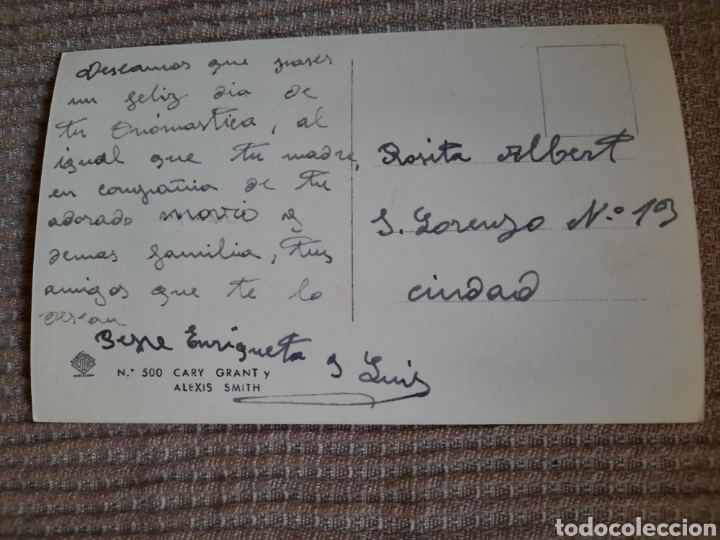 Deseamos que pases
un feliz dia de
tu Onómastica, al
igual que tu madre,
en compañia de tu
adorado novio y
demas familia, tus
amigos que te lo
desean
Enriqueta y Luis
Rosita Albert
S. Lorenzo N.º 19
Ciudad
N.º 500 CARY GRANT y
ALEXIS SMITH
todocoleccion
todocoleccion.net